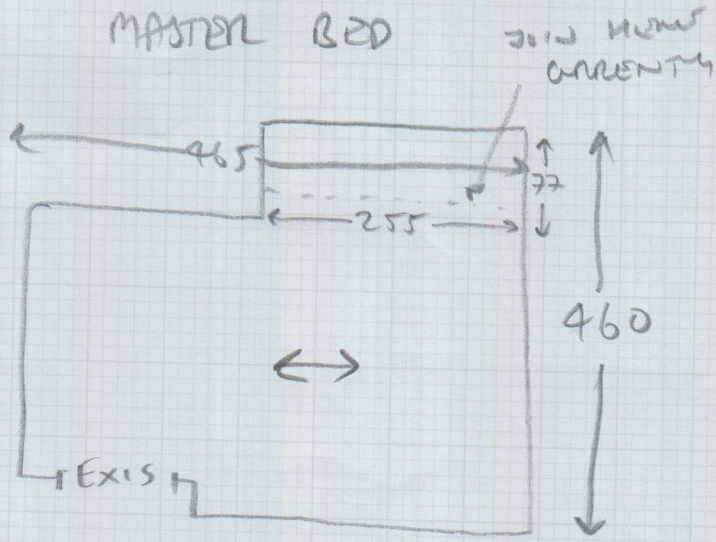 MASTER BED
JOIN HERE
CURRENTLY
465
77
255
460
EXIS